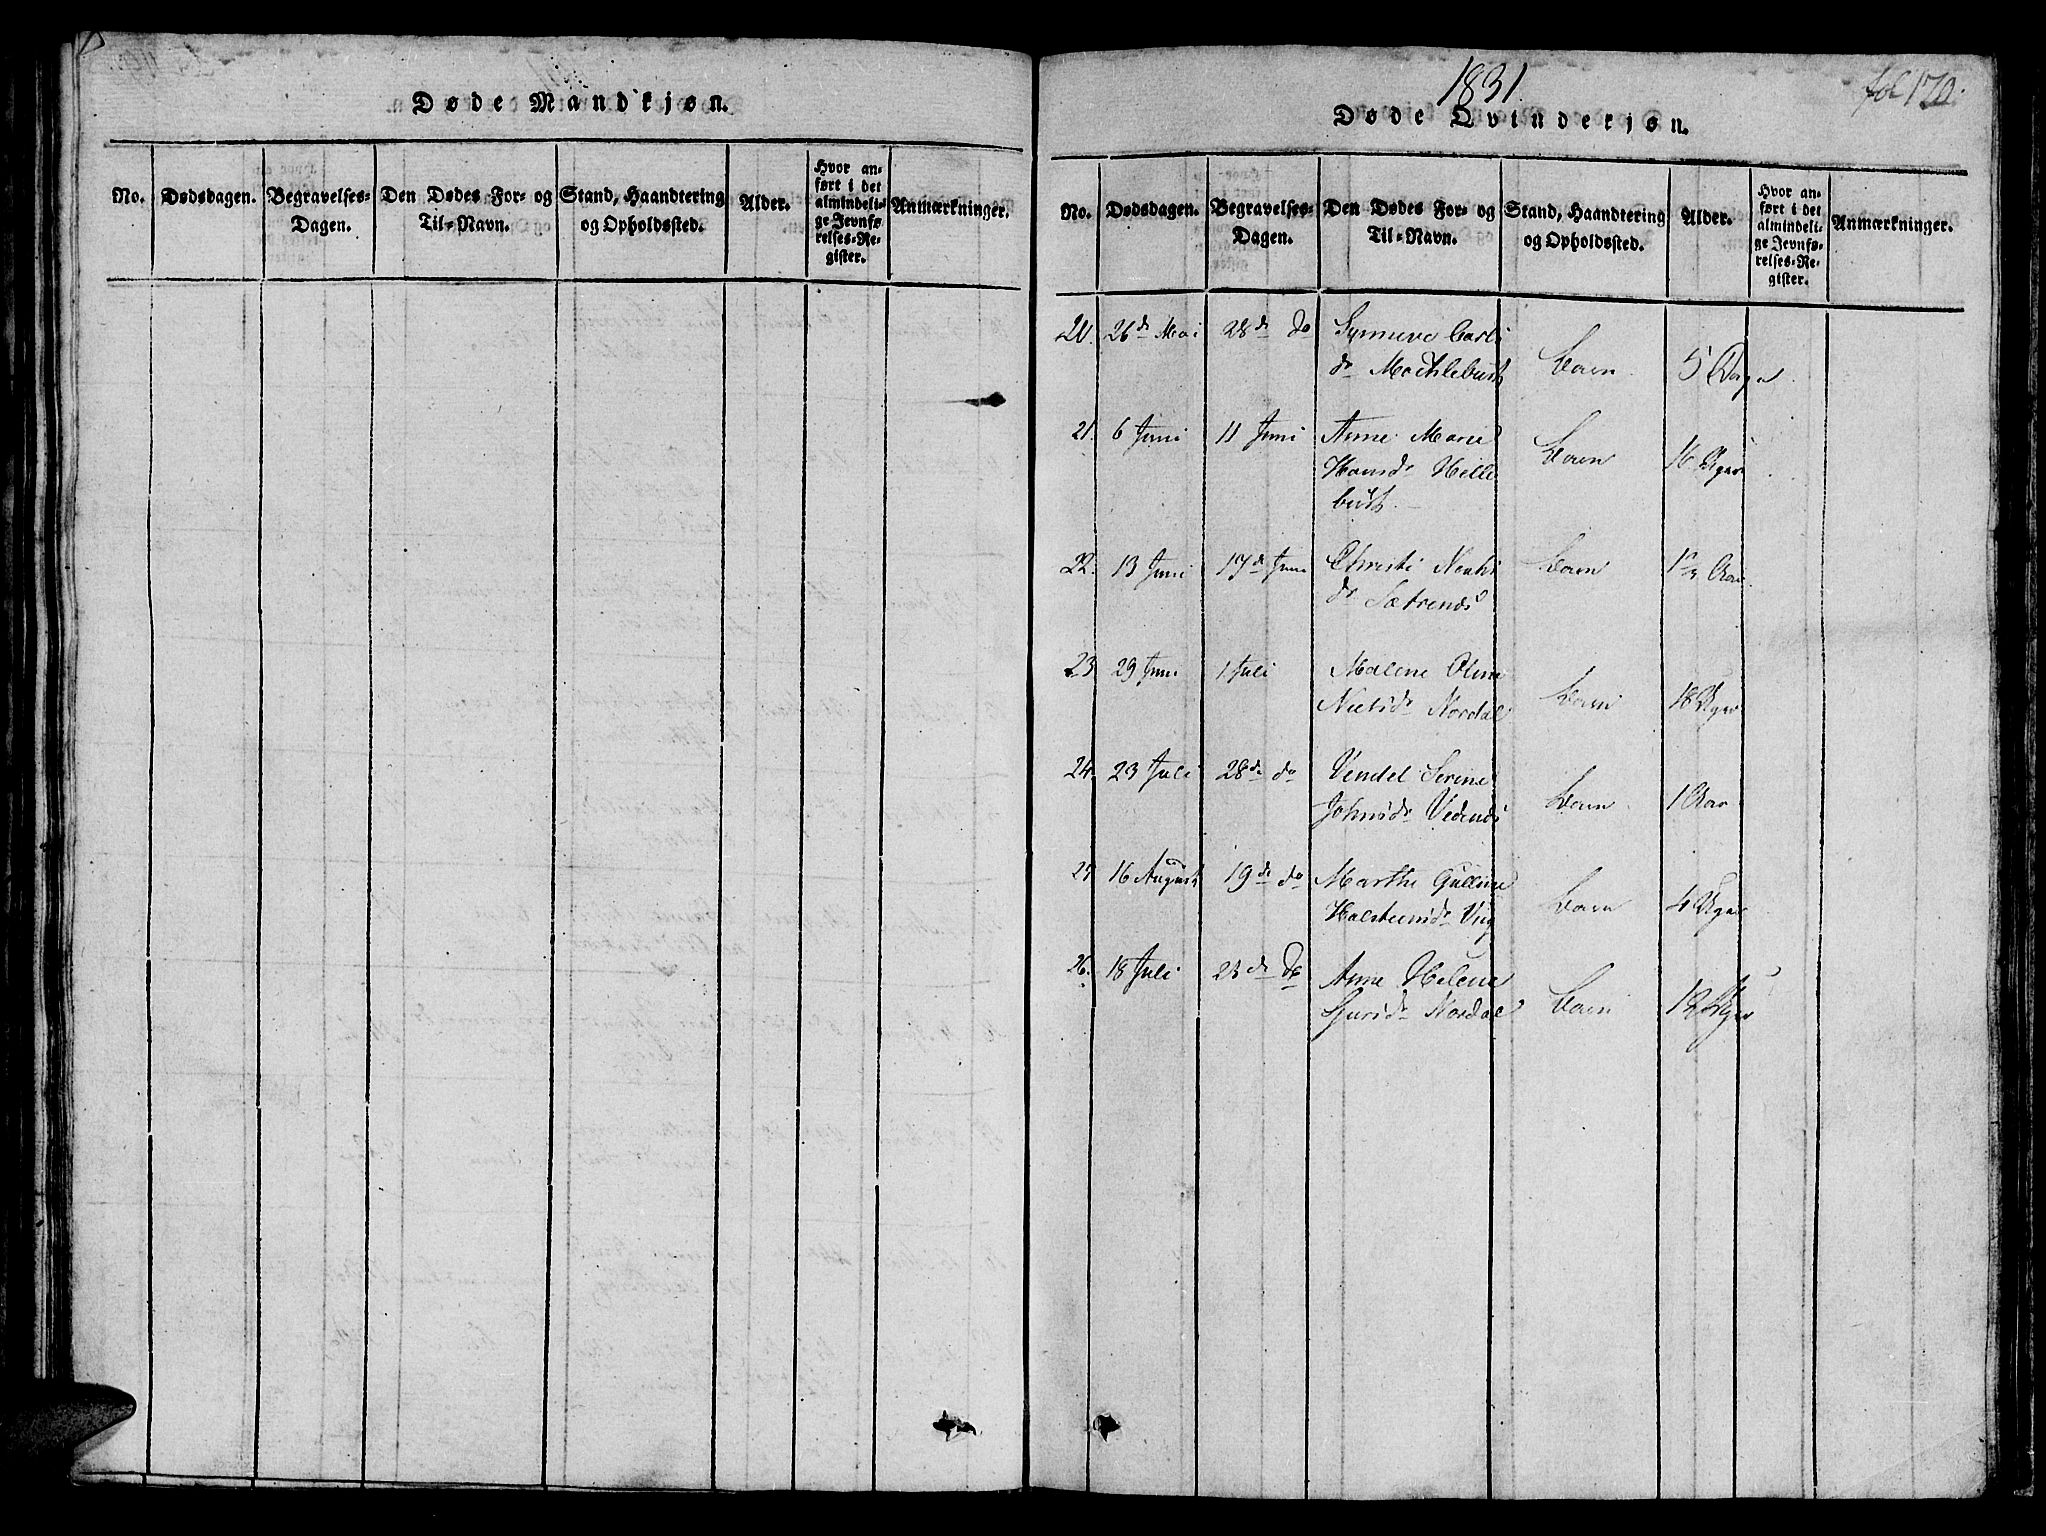 Døde Mandkjøn.
No.
Dødsdagen.
Begravelses-
Dagen.
Den Dødes For- og
Til-Navn.
Stand, Haandtering
og Opholdssted.
Alder.
Hvor an-
ført i det
almindeli-
ge Jevnfø-
relses-Re-
gister.
Anmærkninger.
1831.
fol 170.
Døde Qvindekjøn.
No.
Dødsdagen.
Begravelses-
Dagen.
Den Dødes For- og
Til-Navn.
Stand, Haandtering
og Opholdssted.
Alder.
Hvor an-
ført i det
almindeli-
ge Jevnfø-
relses-Re-
gister.
Anmærkninger.
20. 26de Mai 28de do Synneve Carls
dr Barn 5 Dage
21. 6 Juni 11 Juni Anne Marie
Hansdr Helle Barn 16 Uger
bust.
22. 13 Juni 17de Juni Christi Barn Aar
dr
23 29 Juni 1 Juli Malene Oline
Nielsdr Nordal Barn 18 Uger
24. 23 Juli 28de do Vendel Serine
Johnsdr Barn 1 Aar
25 16 August 19de do Marthe Gulline
Halsteensdr Viig Barn 4 Uger
26. 18 Juli 23de do Anne Helene
Sjursdr Nordal Barn 12 Uger